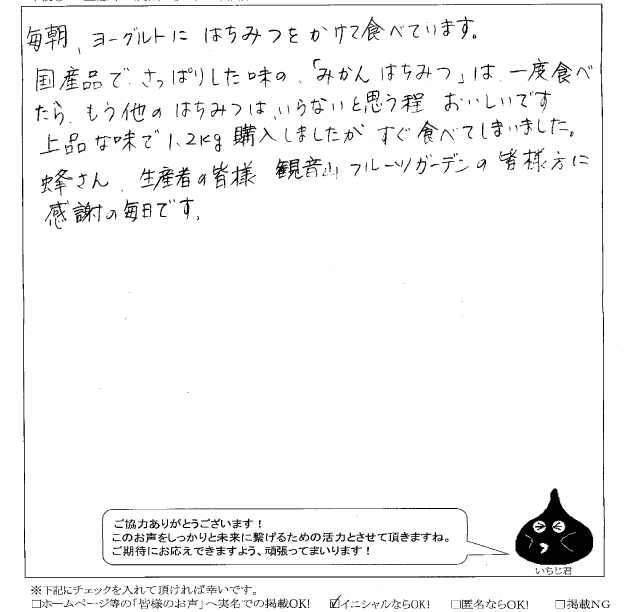 毎朝、ヨーグルトに はちみつを かけて食べています。
国産品で さっぱりした味の、「みかん はちみつ」は、一度食べ
たら、もう他の はちみつは、いらないと思う程 おいしいです
上品な味で 1.2kg 購入しましたが すぐ食べてしまいました。
蜂さん、生産者の皆様 観音山フルーツガーデンの 皆様方に
感謝の毎日です。
ご協力ありがとうございます!
このお声をしっかりと未来に繋げるための活力とさせて頂きますね。
ご期待にお応えできますよう、頑張ってまいります!
いちじ君
※下記にチェックを入れて頂ければ幸いです。
□ホームページ等の「皆様のお声」へ実名での掲載OK! ☑イニシャルならOK! □匿名ならOK! □掲載NG